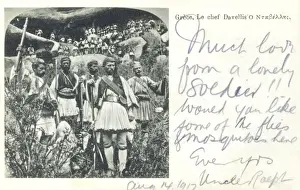 Grèce, Le chef Davellis Ὁ Νταβέλλης,
Much love
from a lonely
Soldier!!
would you like
some of the flies
& mosquitoes here
Ever yrs
Uncle Ralph
Aug 14. 1917